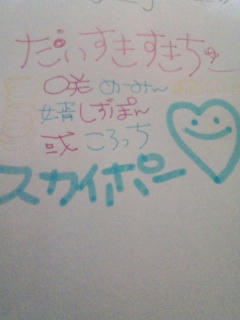 だいすきすきちゅー
咲 めーみん
婿 しずぽん
或 ころっち
スカイポー